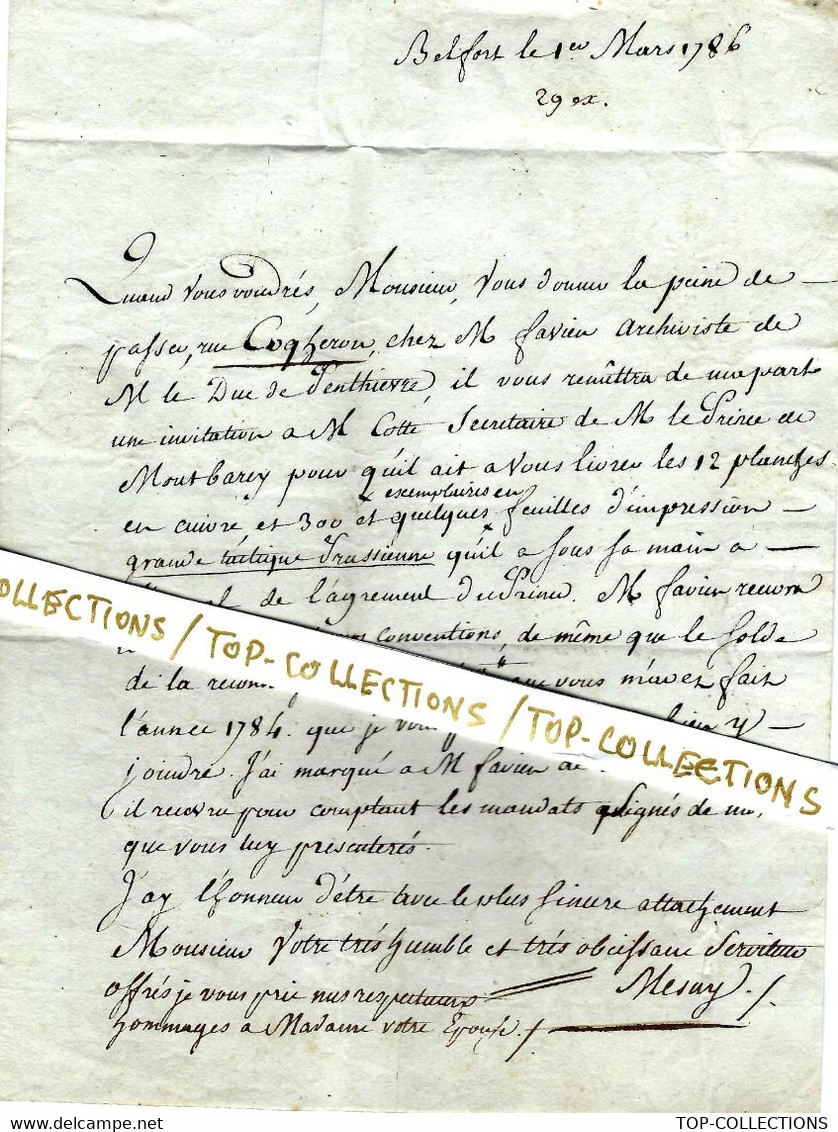 Belfort le 1er Mars 1786
29 ex.
Quand vous voudrés, Monsieur, vous donner la peine de
passer, rue Coqheron, chez M favien archiviste de
M le Duc de Penthievre, il vous remettra de ma part
une invitation a M Cotte Secretaire de M le Prince de
Montbarey pour qu'il ait a vous livrer les 12 planches
exemplaires en
en cuivre et 300 et quelques feuilles d'impression
grande tactique Prussienne qu'il a sous sa main a
de l'agrement du Prince. M favien recevra
conventions, de même que le solde
de la reconn que vous m'avez fait
l'année 1784. que je vous bien y
joindre. J'ai marqué a M favien de
il recevra pour comptant les mandats signés de moi,
que vous luy presenterés.
J'ay l'honneur d'être avec le plus sincere attachement
Monsieur Votre très humble et très obeissant Serviteur
offrés je vous prie nos respectueux Mesny
hommages a Madame votre Epouse
COLLECTIONS / TOP-COLLECTIONS / TOP-COLLECTIONS
TOP-COLLECTIONS